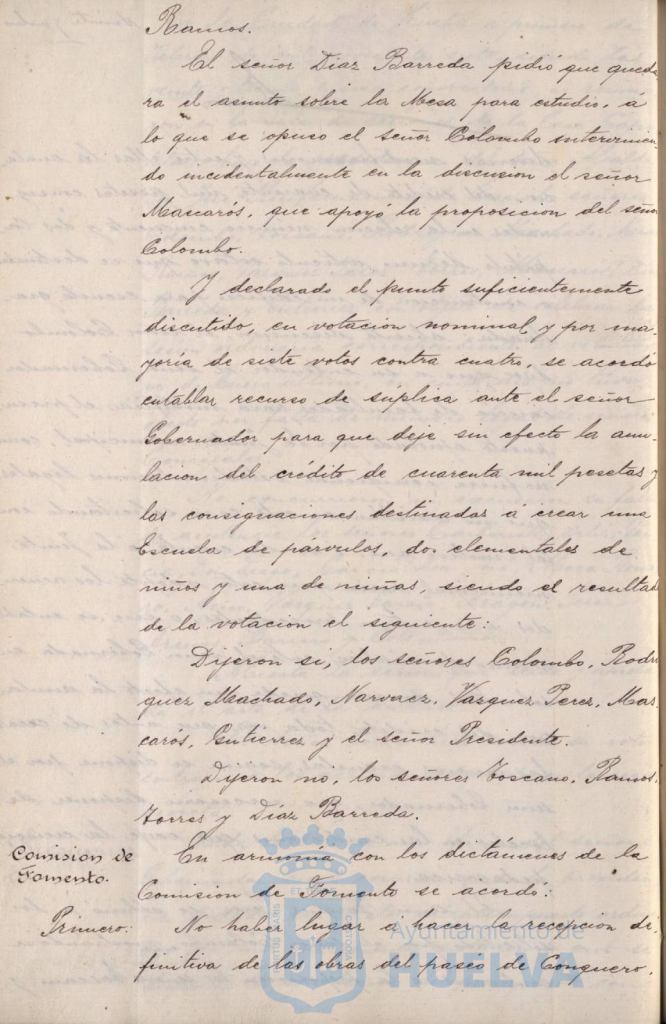 Ramos.
El señor Diaz Barreda pidió que queda
ra el asunto sobre la Mesa para estudio, á
lo que se opuso el señor Colombo intervinien
do incidentalmente en la discusion el señor
Mascarós, que apoyó la proposicion del señor
Colombo.
Y declarado el punto suficientemente
discutido, en votacion nominal y por ma-
yoría de siete votos contra cuatro, se acordó
entablar recurso de súplica ante el señor
Gobernador para que deje sin efecto la anu-
lacion del crédito de cuarenta mil pesetas y
las consignaciones destinadas á crear una
Escuela de párvulos, dos elementales de
niños y una de niñas, siendo el resultado
de la votacion el siguiente:
Dijeron si, los señores Colombo, Rodri
guez Machado, Narvaez, Vazquez Perez, Mas-
carós, Gutierrez y el señor Presidente.
Dijeron no, los señores Toscano, Ramos,
Torres y Díaz Barreda.
Comision de
Fomento.
En armonía con los dictámenes de la
Comision de Fomento se acordó:
Primero:
No haber lugar á hacer la recepcion de-
finitiva de las obras del paseo de Conquero,
Ayuntamiento de
HUELVA